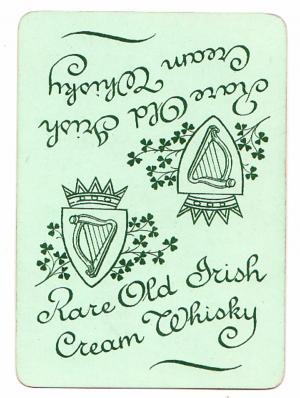 Rare Old Irish
Cream Whisky
Rare Old Irish
Cream Whisky